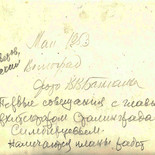 Май 1953
Волгоград
Фото
Первые совещания с главн
архитектором Сталинграда
Симбирцевым.
Намечаются планы работ